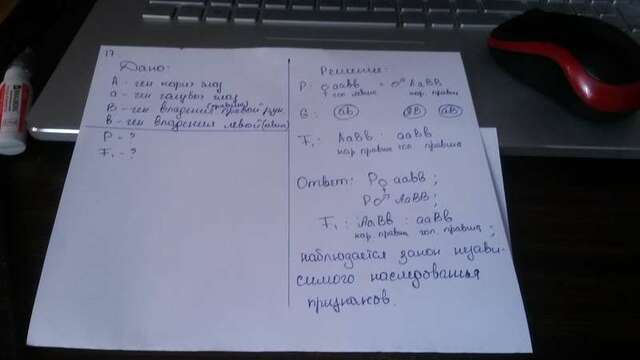 17.
Дано:
А - ген карих глаз
а - ген голубых глаз
В - ген владения (правша) правой рук
в - ген владения левой (левша)
Р - ?
F₁ - ?
Решение:
Р: ♀ аавв × ♂ АаВВ
гол левша кар. правша
G: ав АВ аВ
F₁: АаВв : ааВв
кар. правша гол. правша
Ответ: Р♀ аавв;
Р♂ АаВВ;
F₁: АаВв : ааВв
кар. правша гол. правша;
наблюдается закон незави-
симого наследованья
признаков.